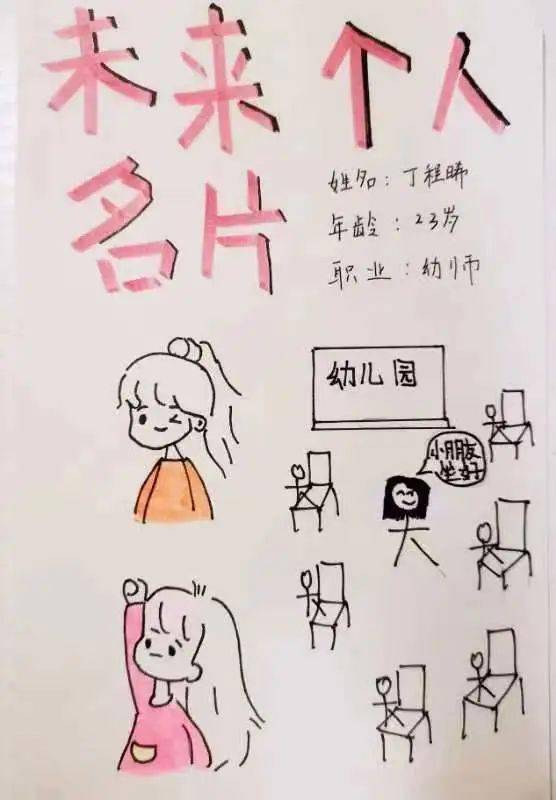 未来个人
名片
姓名：丁程晞
年龄：23岁
职业：幼师
幼儿园
小朋友
坐好